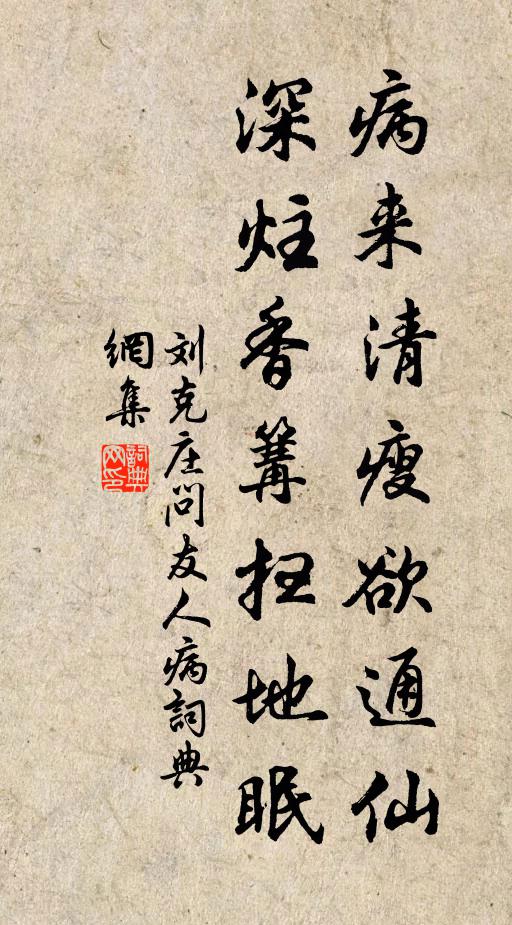 病来清瘦欲通仙
深炷香篝扫地眠
刘克庄问友人病詞典
網集
詞典网印